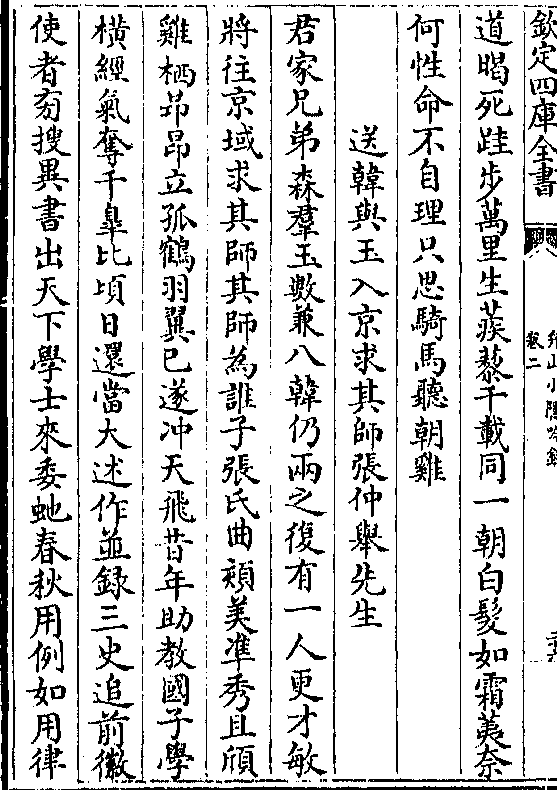 欽定四庫全書
卷二
道暍死跬步萬里生蒺藜千載同一朝白髮如霜荑奈
何性命不自理只思騎馬聽朝雞
送韓與玉入京求其師張仲舉先生
君家兄弟森羣玉數兼八韓仍兩之復有一人更才敏
將往京域求其師其師為誰子張氏曲頰美準秀且頎
雞栖昻昂立孤鶴羽翼已遂冲天飛昔年助教國子學
橫經氣奪千臯比頃日還當大述作並錄三史追前徽
使者旁搜異書出天下學士來委虵春秋用例如用律